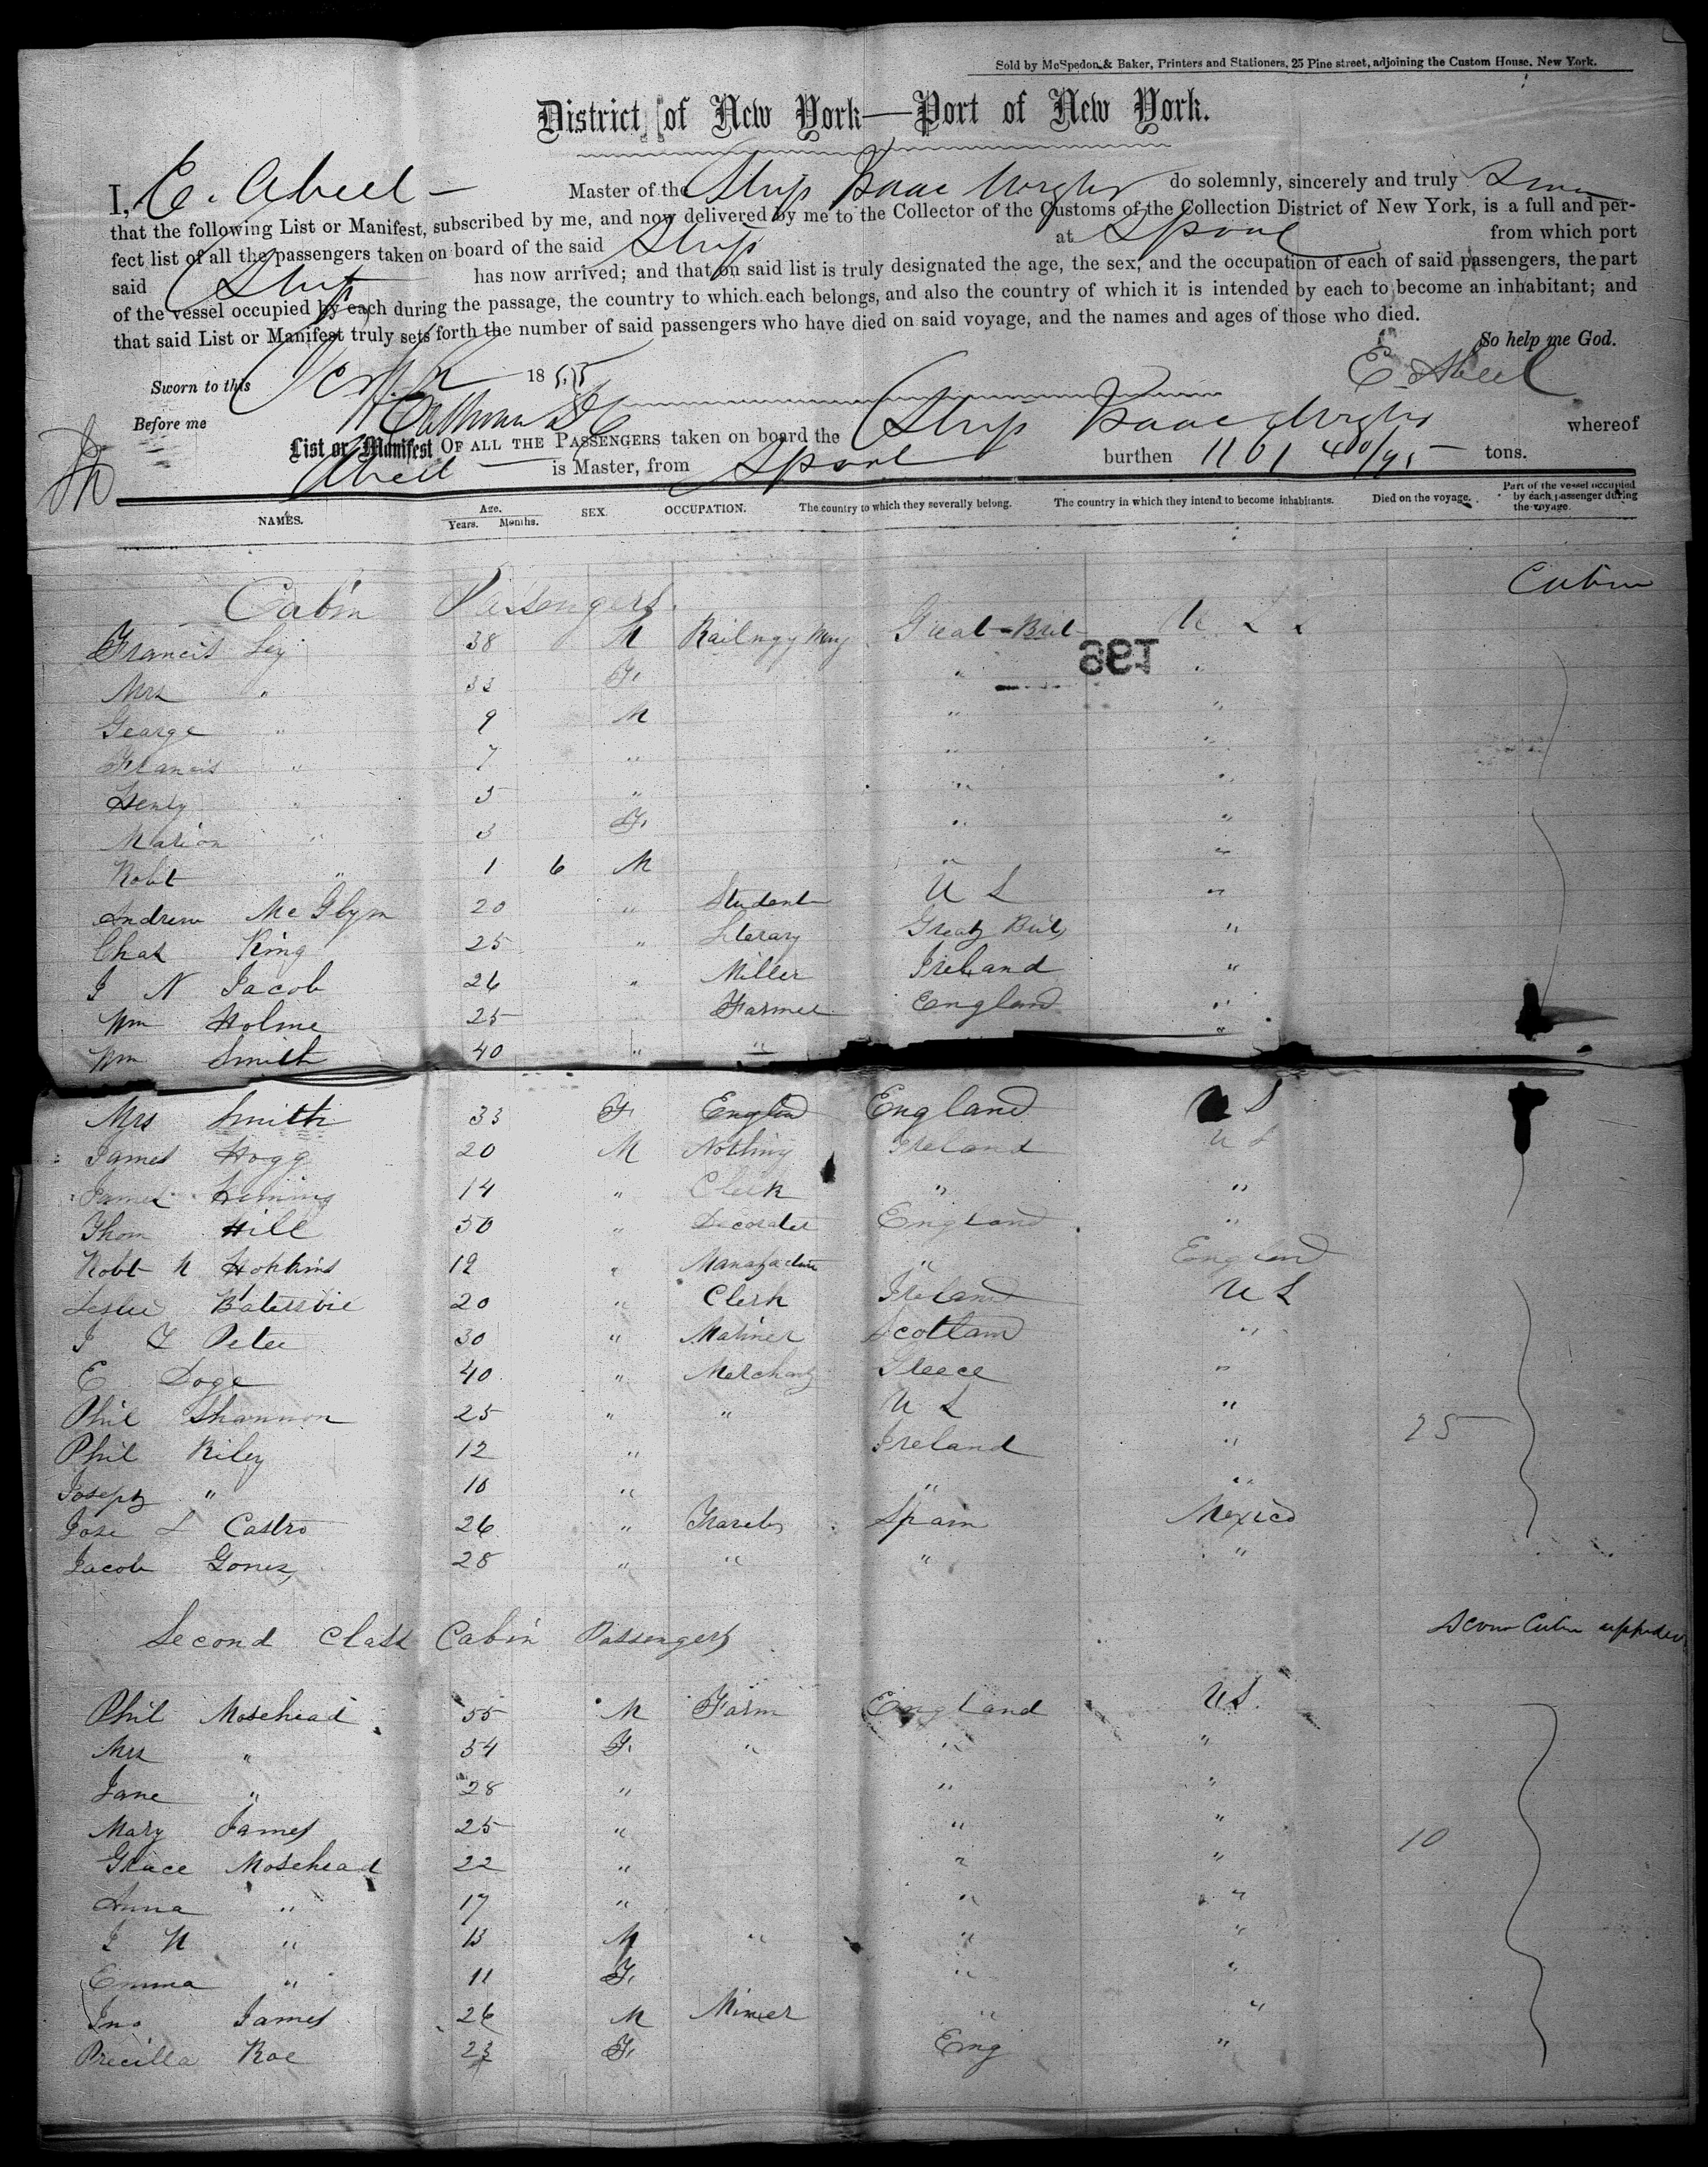 Sold by McSpedon & Baker, Printers and Stationers, 25 Pine street, adjoining the Custom House, New York.
District of New York—Port of New York.
I, E. Abeel — Master of the Ship Isaac Wright do solemnly, sincerely and truly
that the following List or Manifest, subscribed by me, and now delivered by me to the Collector of the Customs of the Collection District of New York, is a full and per-
fect list of all the passengers taken on board of the said Ship at Lpool from which port
said Ship has now arrived; and that on said list is truly designated the age, the sex, and the occupation of each of said passengers, the part
of the vessel occupied by each during the passage, the country to which each belongs, and also the country of which it is intended by each to become an inhabitant; and
that said List or Manifest truly sets forth the number of said passengers who have died on said voyage, and the names and ages of those who died.
So help me God.
Sworn to this 1855 E. Abeel
Before me
List or Manifest OF ALL THE PASSENGERS taken on board the Ship Isaac Wright whereof
Abeel — is Master, from Lpool burthen 1161 tons.
NAMES. Age. Years. Months. SEX. OCCUPATION. The country to which they severally belong. The country in which they intend to become inhabitants. Died on the voyage. Part of the vessel occupied by each passenger during the voyage.
Cabin Passengers Cabin
Francis Ley 38 M Railway Great Brit U S
196
Mrs " 33 F. " "
George " 9 M " "
Francis " 7 " " "
Henry " 5 " " "
Marion " 3 F. " "
Robt " 1 6 M " "
Andrew McGlyn 20 " Student U S "
Chas King 25 " Literary Great Brit, "
J N Jacob 26 " Miller Ireland "
Wm Holme 25 Farmer England "
Wm Smith 40 " " "
Mrs Smith 33 F. England England U S
James Hogg 20 M Nothing Ireland U S
James 14 " Clerk " "
Thom Hill 50 " Decorater England "
Robt H Hopkins 19 " Manafacture " England
Leslie 20 " Clerk Ireland U S
J Peter 30 " Mariner Scotland "
E Doge 40 " Merchant Greece "
Phil Shannon 25 " " U S " 25
Phil Riley 12 " Ireland "
Joseph " 10 " " "
Jose L Castro 26 " Spain Mexico
Jacob Gomez 28 " " " "
Second Class Cabin Passengers Cabin
Phil Mosehead 55 M Farm England U S.
Mrs " 54 F. " " "
Jane " 28 " " "
Mary James 25 " " "
Grace Mosehead 22 " " " 10
Anna " 17 " " "
J H " 13 M " " "
Emma " 11 F. " "
Jno James 26 M Minier " "
Precilla Roe 23 F. Eng "